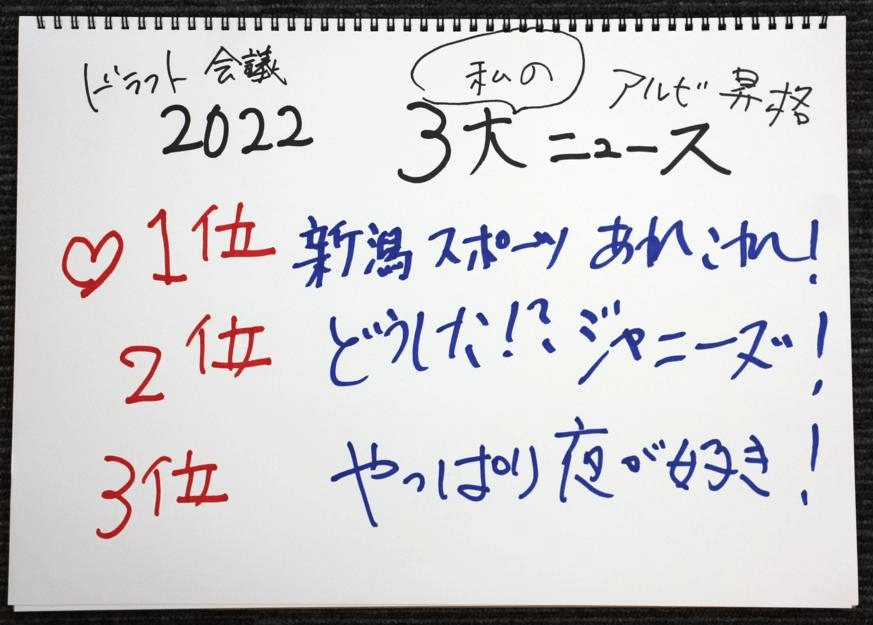 ドラフト会議 私の アルビ昇格
2022 3大ニュース
♡1位 新潟スポーツあれこれ!
2位 どうした!?ジャニーズ!
3位 やっぱり夜が好き!